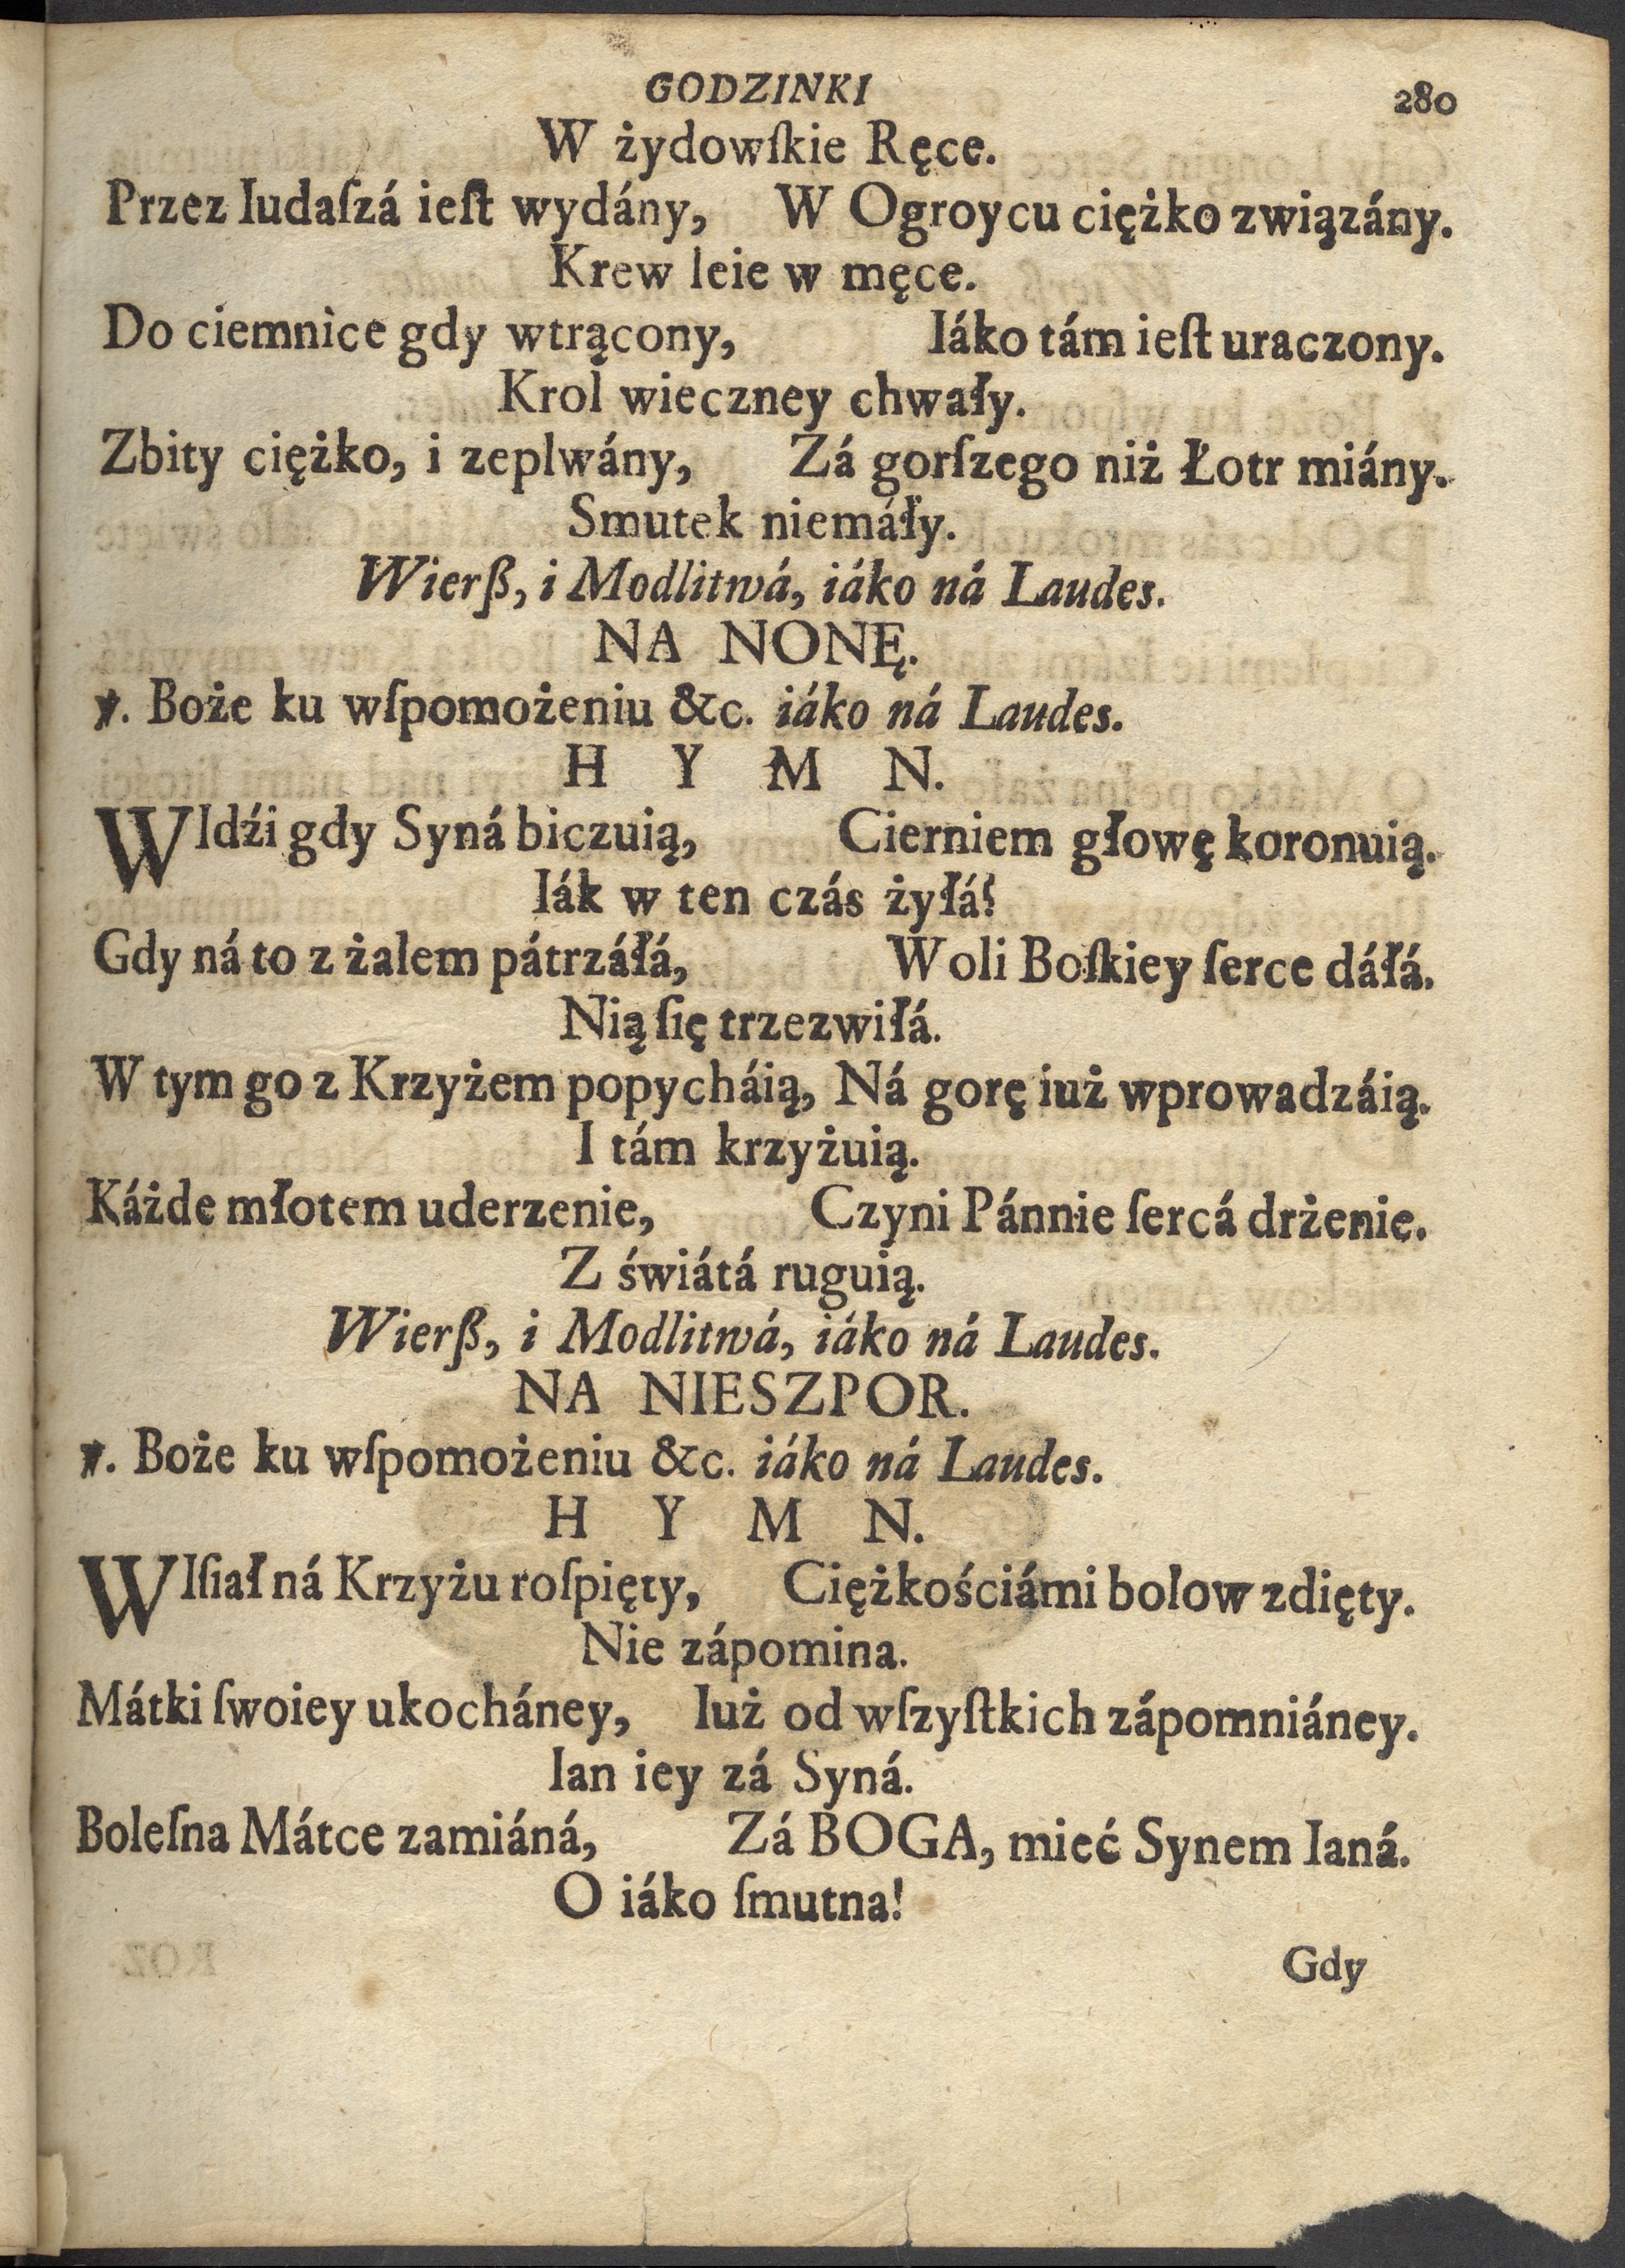 GODZINKI 280
W żydowſkie Ręce.
Przez Iudaſzá ieſt wydány, W Ogroycu ciężko związány.
Krew leie w męce.
Do ciemnice gdy wtrącony, Iáko tám ieſt uraczony.
Krol wieczney chwały.
Zbity ciężko, i zeplwány, Zá gorſzego niż Łotr miány.
Smutek niemáły.
Wierß, i Modlitwá, iáko ná Laudes.
NA NONĘ.
℣. Boże ku wſpomożeniu &c. iáko ná Laudes.
H Y M N.
WIdźi gdy Syná biczuią, Cierniem głowę koronuią.
Iák w ten czás żyłá!
Gdy ná to z żalem pátrzáłá, Woli Boſkiey ſerce dáłá.
Nią ſię trzezwiłá.
W tym go z Krzyżem popycháią, Ná gorę iuż wprowadzáią.
I tám krzyżuią.
Káżde młotem uderzenie, Czyni Pánnie ſercá drżenie.
Z świátá ruguią.
Wierß, i Modlitwá, iáko ná Laudes.
NA NIESZPOR.
℣. Boże ku wſpomożeniu &c. iáko ná Laudes.
H Y M N.
WIſiał ná Krzyżu roſpięty, Ciężkościámi bolow zdięty.
Nie zápomina.
Mátki ſwoiey ukocháney, Iuż od wſzyſtkich zápomniáney.
Ian iey zá Syná.
Boleſna Mátce zamiáná, Zá BOGA, mieć Synem Ianá.
O iáko ſmutna!
Gdy